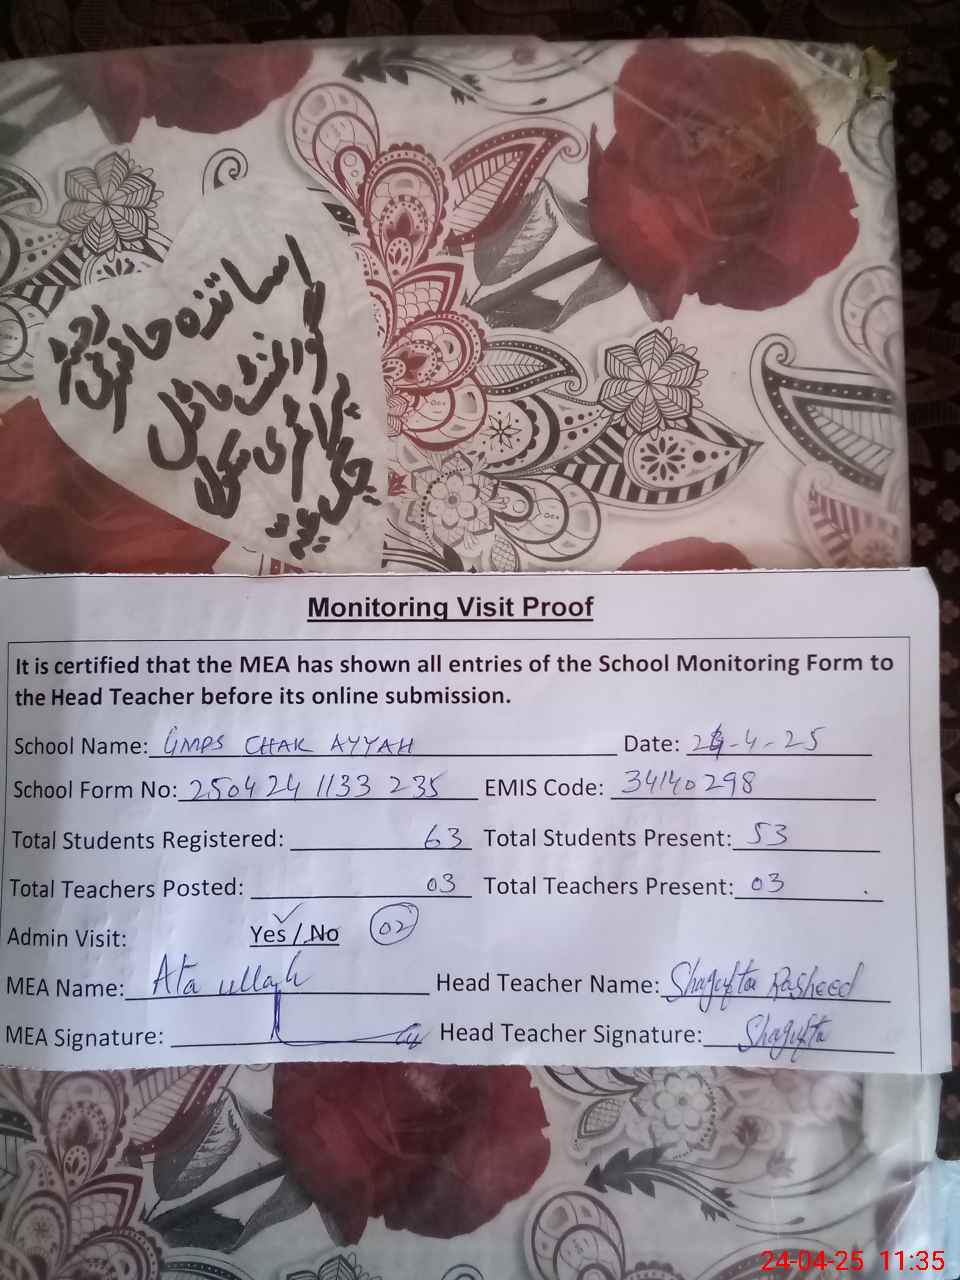 اساتذہ حاضری رجسٹر
گورنمنٹ ماڈل
پرائمری سکول
چک
Monitoring Visit Proof
It is certified that the MEA has shown all entries of the School Monitoring Form to
the Head Teacher before its online submission.
School Name: GMPS CHAK AYYAH Date: 24-4-25
School Form No: 250424 1133 235 EMIS Code: 34140298
Total Students Registered: 63 Total Students Present: 53
Total Teachers Posted: 03 Total Teachers Present: 03
Admin Visit: Yes / No 02
MEA Name: Ata ullah Head Teacher Name: Shagufta Rasheed
MEA Signature: Head Teacher Signature: Shagufta
24-04-25 11:35